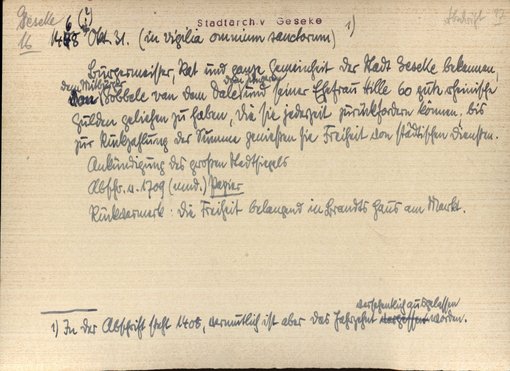 Geseke
16
Stadtarch.v Geseke
Abschrift
6 (?)
1408 Okt. 31. (in vigilia omnium sanctorum) 1)
Bürgermeister, Rat und ganze Gemeinheit der Stadt Geseke bekennen,
dem Mitbürger
Bobbele van dem Dale und seiner Ehefrau Hille 60 gute rheinische
Gulden geliehen zu haben, die sie jederzeit zurückfordern können. bis
zur Rückzahlung der Summe geniessen sie Freiheit von städtischen Diensten.
Ankündigung des grossen Stadtsiegels
Abschr. v. 1709 (mnd.) Papier
Rückvermerk: die Freiheit belangend in Brandts Haus am Markt.
versehentlich ausgelassen
1) In der Abschrift steht 1408, vermutlich ist aber das Jahrzehnt vergessen worden.